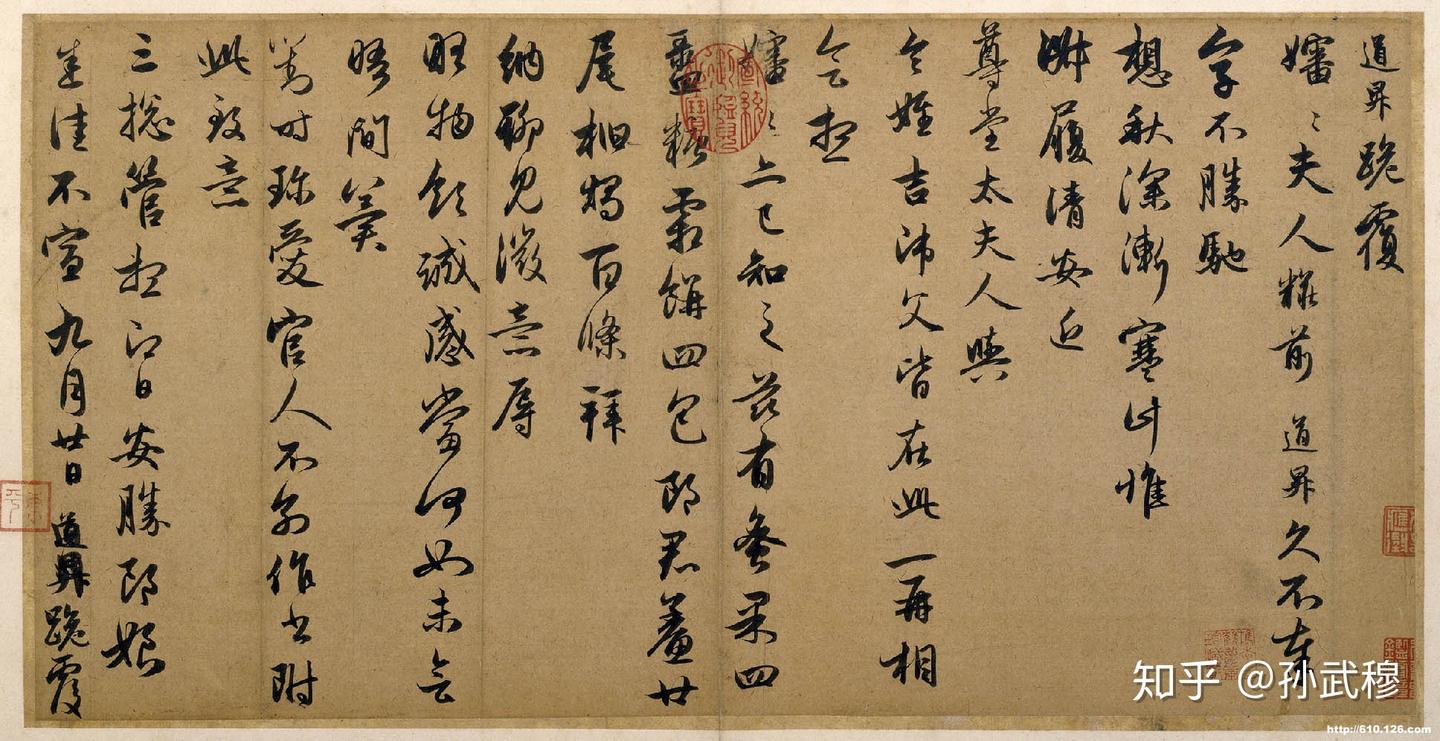 道昇跪覆
嬸〻夫人粧前道昇久不奉
字不勝馳
想秋深漸寒計惟
淑履清安近
尊堂太夫人與
令姪吉師父皆在此一再相
會想
嬸〻亦已知之茲有蜜果四
盝糖霜餅四包郎君鯗廿
尾桕燭百條拜
納聊見微意辱
物領誠感當何如未會
晤間冀
對時珎愛官人不別作書附
此致意
三總管想即日安勝郎娘
悉佳不宣九月廿日道昇跪覆
知乎 @孙武穆
http://610.126.com